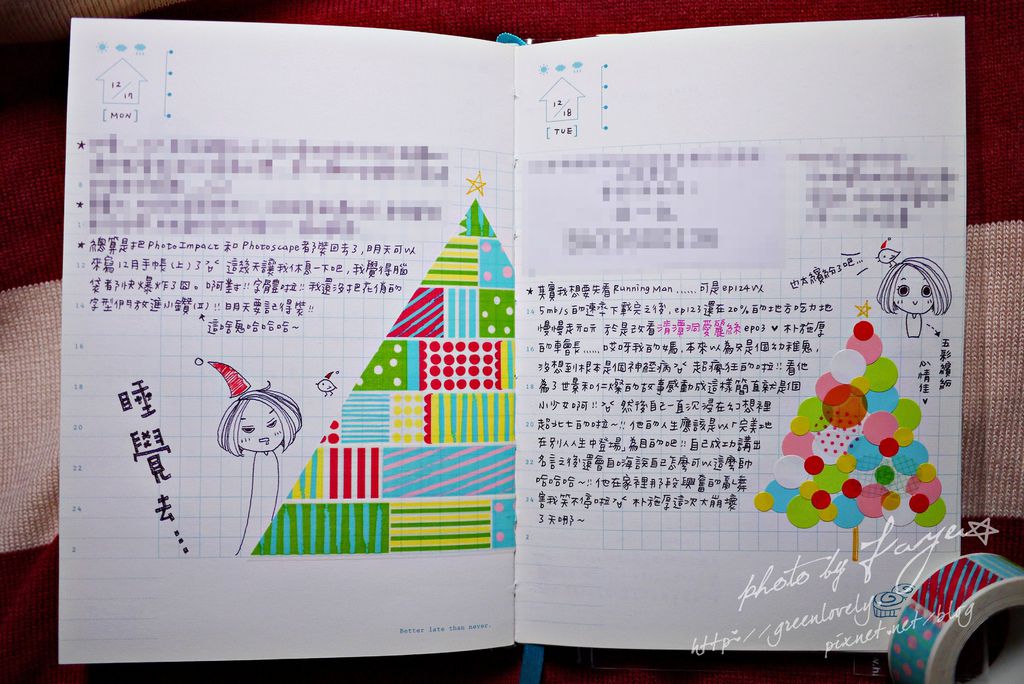 12/17
[MON]
★ 總算是把 PhotoImpact 和 Photoscape 都裝回去了，明天可以
來寫12月手帳(上)了 這幾天讓我休息一下吧，我覺得腦
袋都快爆炸了囧。啊對!! 字體啦!! 我還沒把花俏的
字型們放進小鑽(II)!! 明天要記得裝!!
這啥鬼哈哈哈~
睡覺去...
8
12
14
16
18
20
22
24
2
Better late than never.
12/18
[TUE]
也太繽紛了吧...
★ 其實我想要先看 Running Man ...... 可是 ep124 以
5mb/s 的速率下載完之後，ep123 還在 20% 的地方吃力地
慢慢走 于是改看清潭洞愛麗絲 ep03 ♥ 朴施厚
的車會長...... 哎呀我的媽，本來以為只是個幼稚鬼，
沒想到根本是個神經病 超瘋狂的啦!! 看他
為了世景和仁燦的故事感動成這樣簡直就是個
小少女啊!! 然後自己一直沉浸在幻想裡
超北七的啦~!! 他的人生應該是以「完美地
在別人人生中登場」為目的吧!! 自己成功講出
名言之後還會自嗨說自己怎麼可以這麼帥
哈哈哈~!! 他在家裡那段興奮的亂舞
害我笑不停啦 朴施厚這次大崩壞
了天哪~
五彩繽紛
心情佳 ♥
14
16
18
20
22
24
2
photo by Faye☆
http://greenlovely
pixnet.net/blog